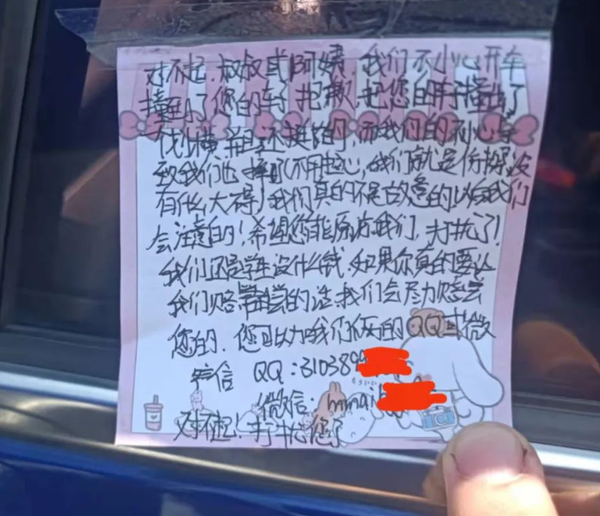 对不起,叔叔或阿姨,我们不小心开车
撞到了您的车,抱歉,把您的车撞出了
划横,并且还挺的,而我们的不小心导
致我们也摔趴(不用担心,我们就是仿摔没
有什么大碍)我们真的不是故意的以后我们
会注意的!希望您能原谅我们,打扰了!
我们还是学生没什么钱,如果你真的要让
我们赔偿的话,我们会尽力赔尝
您的.您可以加我们俩的QQ或微
信 QQ:310389
微信:
对不起!打扰您了